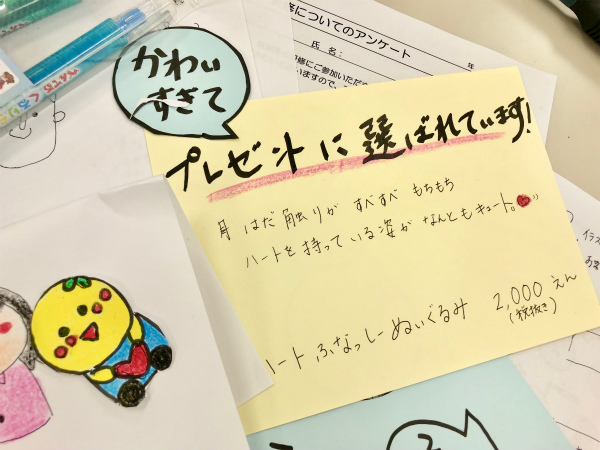 かわい
すぎて
プレゼントに選ばれています!
はだ触りが すべすべ もちもち
ハートを持っている姿がなんともキュート。
ハート ふなっしーぬいぐるみ 2,000えん
(税抜き)
についてのアンケート
氏名:
年
修にご参加いただ
いますので、